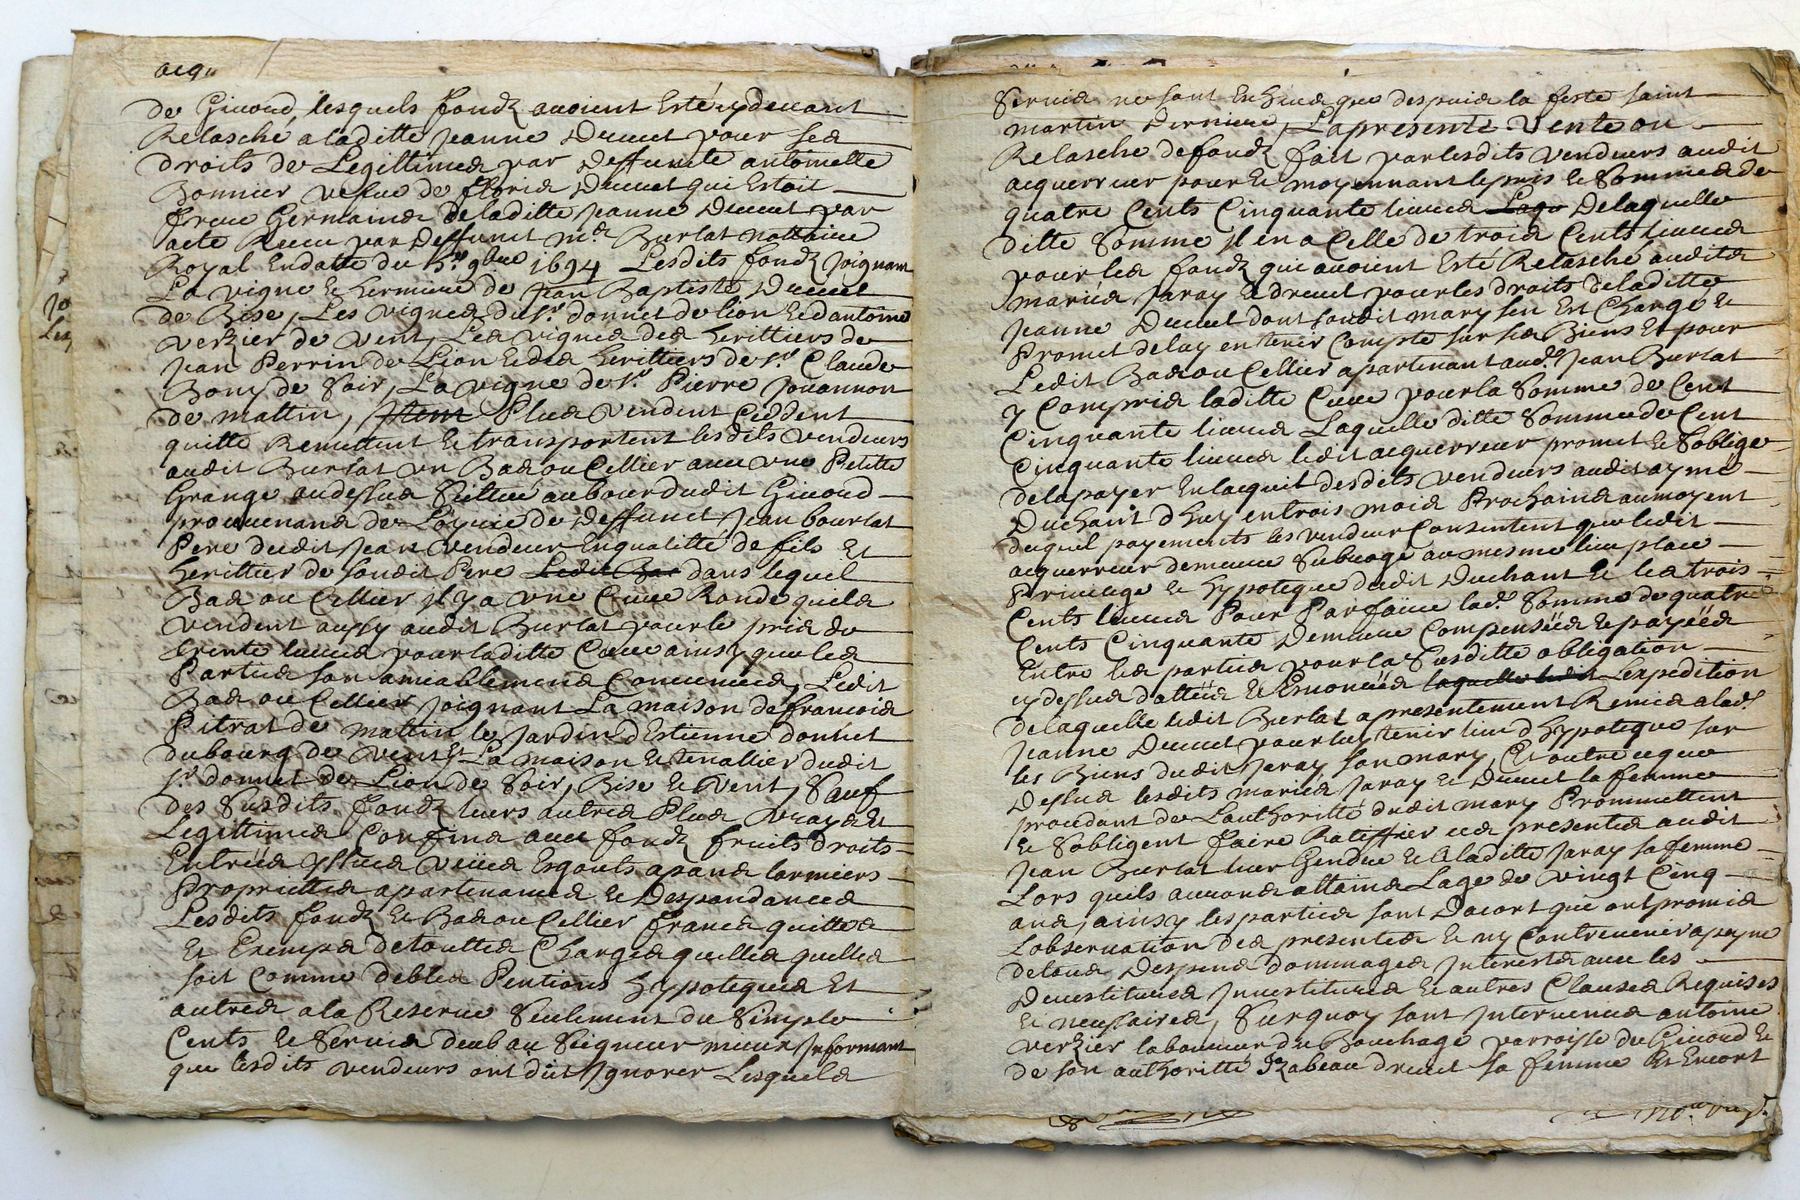 acq
de Givord, lesquels fondz avoient Esté cy devant
Relasché a laditte Jeanne Drevet pour ses
droits de Legittimes par deffunte antoinette
Bonnier vefve de Floris Drevet qui Estoit
frere Germains de laditte Jeanne Drevet par
acte Receu par deffunct me Burlat nottaire
Royal En datte du 9bre 1694 Lesdits fondz Joignant
La vigne & hermiere de Jean Baptiste Drevet
de Bise, Les vignes du Sr donnet de lion & d'antoine
verzier de vent, Les vignes des herittiers de
Jean Perrin de Lion & des herittiers de Sr Claude
Bony de soir, La vigne de Sr Pierre Jouannon
de mattin, Item Plus vendent Ceddent
quitte Remettent & transportent lesdits vendeurs
audit Burlat un Bas ou Cellier avec une Petitte
Grange au dessus Scittué au bour dudit Givord
provenans de Loyrie de deffunct Jean bourlat
Pere dudit Jean vendeur En qualitté de fils Et
herittier de sondit Pere Ledit Bas dans lequel
Bas ou Cellier il y a une Cuve Ronde quils
vendent aussy audit Burlat pour le pris de
trente livres pour laditte Cuve ainsy que les
Parties son amiablement Convenues, Ledit
Bas ou Cellier Joignant La maison de francois
Pitrat de mattin le Jardin d'Estienne donnet
du bourg de vent Et La maison & tenallier dudit
Sr donnet de Lion de Soir, Bise & vent, Sauf
des Susdits fondz leurs autres Plus vrays Et
Legittimes Confins avec fondz fruits droits
Entrées yssues veües Esgouts apans larmiers
Propriettes apartenances & Despandances
Lesdits fondz & Bas ou Cellier francs quittes
Et Exemps de touttes Charges quelles quelles
soit Comme debtes Pentions hypoteques Et
autres a la Reserve Seulement du Simple
Cents & Servis deub au Seigneur mieux Informant
que lesdits vendeurs ont dit Ignorer Lesquels
Servis ne sont En heus que despuis la feste saint
martin Derniere, La presente Vente ou
Relasche de fondz fait par lesdits vendeurs audit
acquerreur pour & moyennant le pris & Sommes de
quatre Cents Cinquante livres Laqu De laquelle
ditte Somme il en a Celle de trois Cents livres
pour les fondz qui avoient Esté Relasché audits
mariés Jaray & drevet pour les droits de laditte
Jeanne Drevet dont sondit mary sen Est Chargé &
Promet de luy en tenir Compte sur ses Biens Et pour
Ledit Bas ou Cellier apartenant aud. Jean Burlat
y Compris laditte Cuve pour la Somme de Cent
Cinquante livres Laquelle ditte Somme de Cent
Cinquante livres ledit acquerreur promet & Soblige
de la payer En lacquit desdits vendeurs audit aymé
Duchant d'huy en trois mois Prochains au moyent
duquel payements les vendeur Consentent que ledit
acquerreur demeure Subrogé au mesme lieu place
Privilege & hypoteque dudit Duchant & les trois
Cents livres Pour Parfaire lad. Somme de quatre
Cents Cinquante Demeure Compensées & payées
Entre les parties pour la Susditte obligation
cy dessus dattées & Enoncées laquelle ledit Lexpedition
de laquelle ledit Burlat a presentement Remis a lad.
Jeanne Drevet pour luy tenir lieu d'hypoteque sur
les Biens dudit Jaray son mary, Et outre ce que
Dessus lesdits mariés Jaray & Drevet la femme
procedant de Lauthoritté dudit mary Promettent
& Sobligent faire Rateffier ces presentes audit
Jean Burlat leur Gendre & a laditte Jaray sa femme
Lors quils auront attains Lage de vingt Cinq
ans, ainsy les parties sont Dacort que ont promis
Lobservation des presentes & ny Contrevenir a peyne
de tous Despens dommages Interests avec les
Devestitures Investitures & autres Clauses Requises
& necessaires, Surquoy sont Intervenus antoine
verzier laboureur du Bouchage parroisse de Givord &
de son authoritté Izabeau drevet sa femme Et Encort